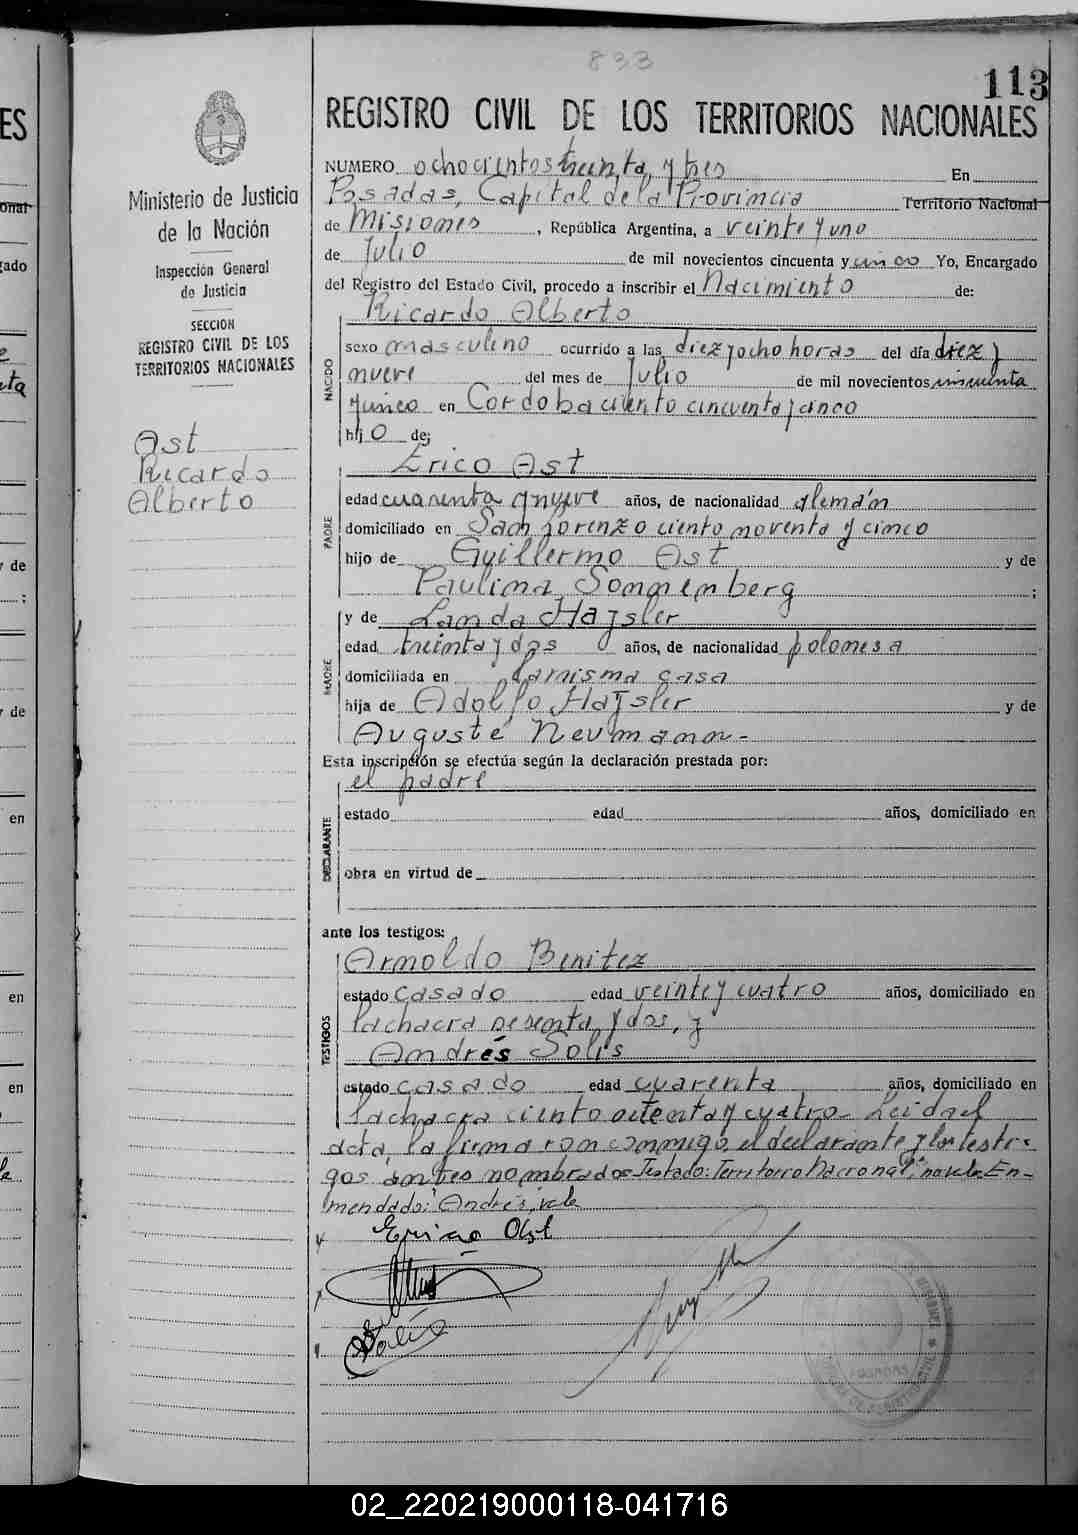 833
113
REGISTRO CIVIL DE LOS TERRITORIOS NACIONALES
Ministerio de Justicia
de la Nación
Inspección General
de Justicia
SECCION
REGISTRO CIVIL DE LOS
TERRITORIOS NACIONALES
Ast
Ricardo
Alberto
NUMERO ochocientos treinta y tres En
Posadas, Capital de la Provincia Territorio Nacional
de Misiones, República Argentina, a veinte y uno
de Julio de mil novecientos cincuenta y cinco Yo, Encargado
del Registro del Estado Civil, procedo a inscribir el Nacimiento de:
NACIDO
Ricardo Alberto
sexo masculino ocurrido a las diez y ocho horas del día diez y
nueve del mes de Julio de mil novecientos cincuenta
y cinco en Cordoba ciento cincuenta y cinco
hijo de;
PADRE
Erico Ast
edad cuarenta y nueve años, de nacionalidad alemán
domiciliado en San Lorenzo ciento noventa y cinco
hijo de Guillermo Ast y de
Paulina Sonnenberg ;
MADRE
y de Landa Haysler
edad treinta y dos años, de nacionalidad polonesa
domiciliada en la misma casa
hija de Adolfo Haysler y de
Auguste Neumann -
Esta inscripción se efectúa según la declaración prestada por:
el padre
DECLARANTE
estado edad años, domiciliado en
obra en virtud de
ante los testigos:
TESTIGOS
Arnoldo Benitez
estado casado edad veinte y cuatro años, domiciliado en
la chacra sesenta y dos, y
Andrés Solis
estado casado edad cuarenta años, domiciliado en
la chacra ciento setenta y cuatro - Leida el
acta, la firma ron conmigo, el declarante y los testi-
gos antes nombrados - Testado: "Territorio Nacional", no vale. En-
mendado: "Andrés", vale
Erico Ast
Solis
POSADAS
02_220219000118-041716